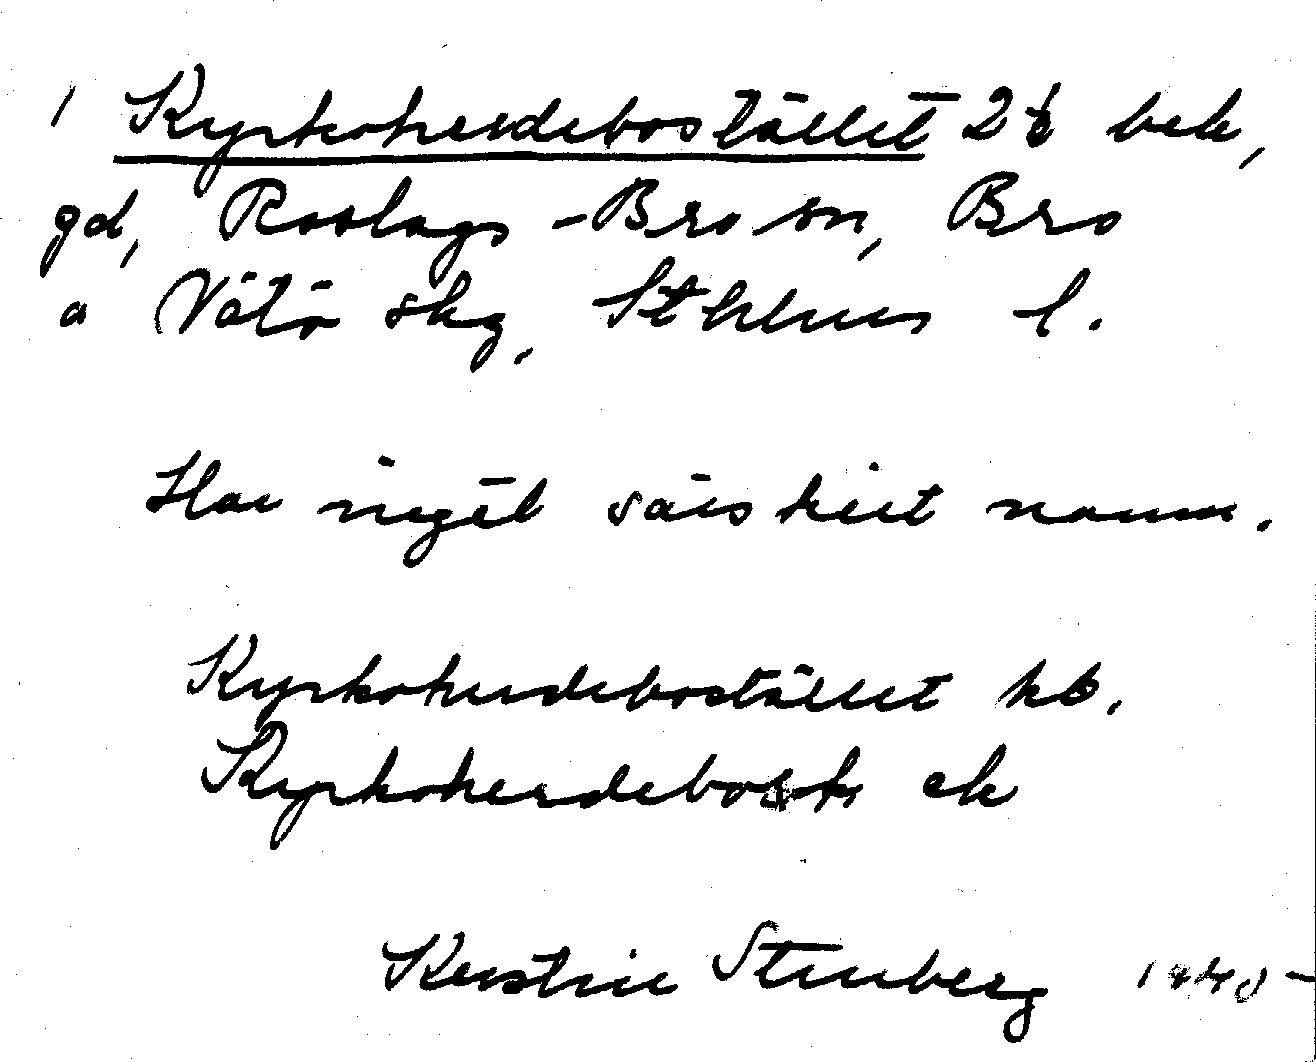 1 Kyrkoherdebostället 2 bek,
gd, Roslags-Bro sn, Bro
o Vätö skg, Sthlms l.
Har inget särskilt namn.
Kyrkoherdebostället kb.
Kyrkoherdebost ek
Kerstin Stenberg 1940-